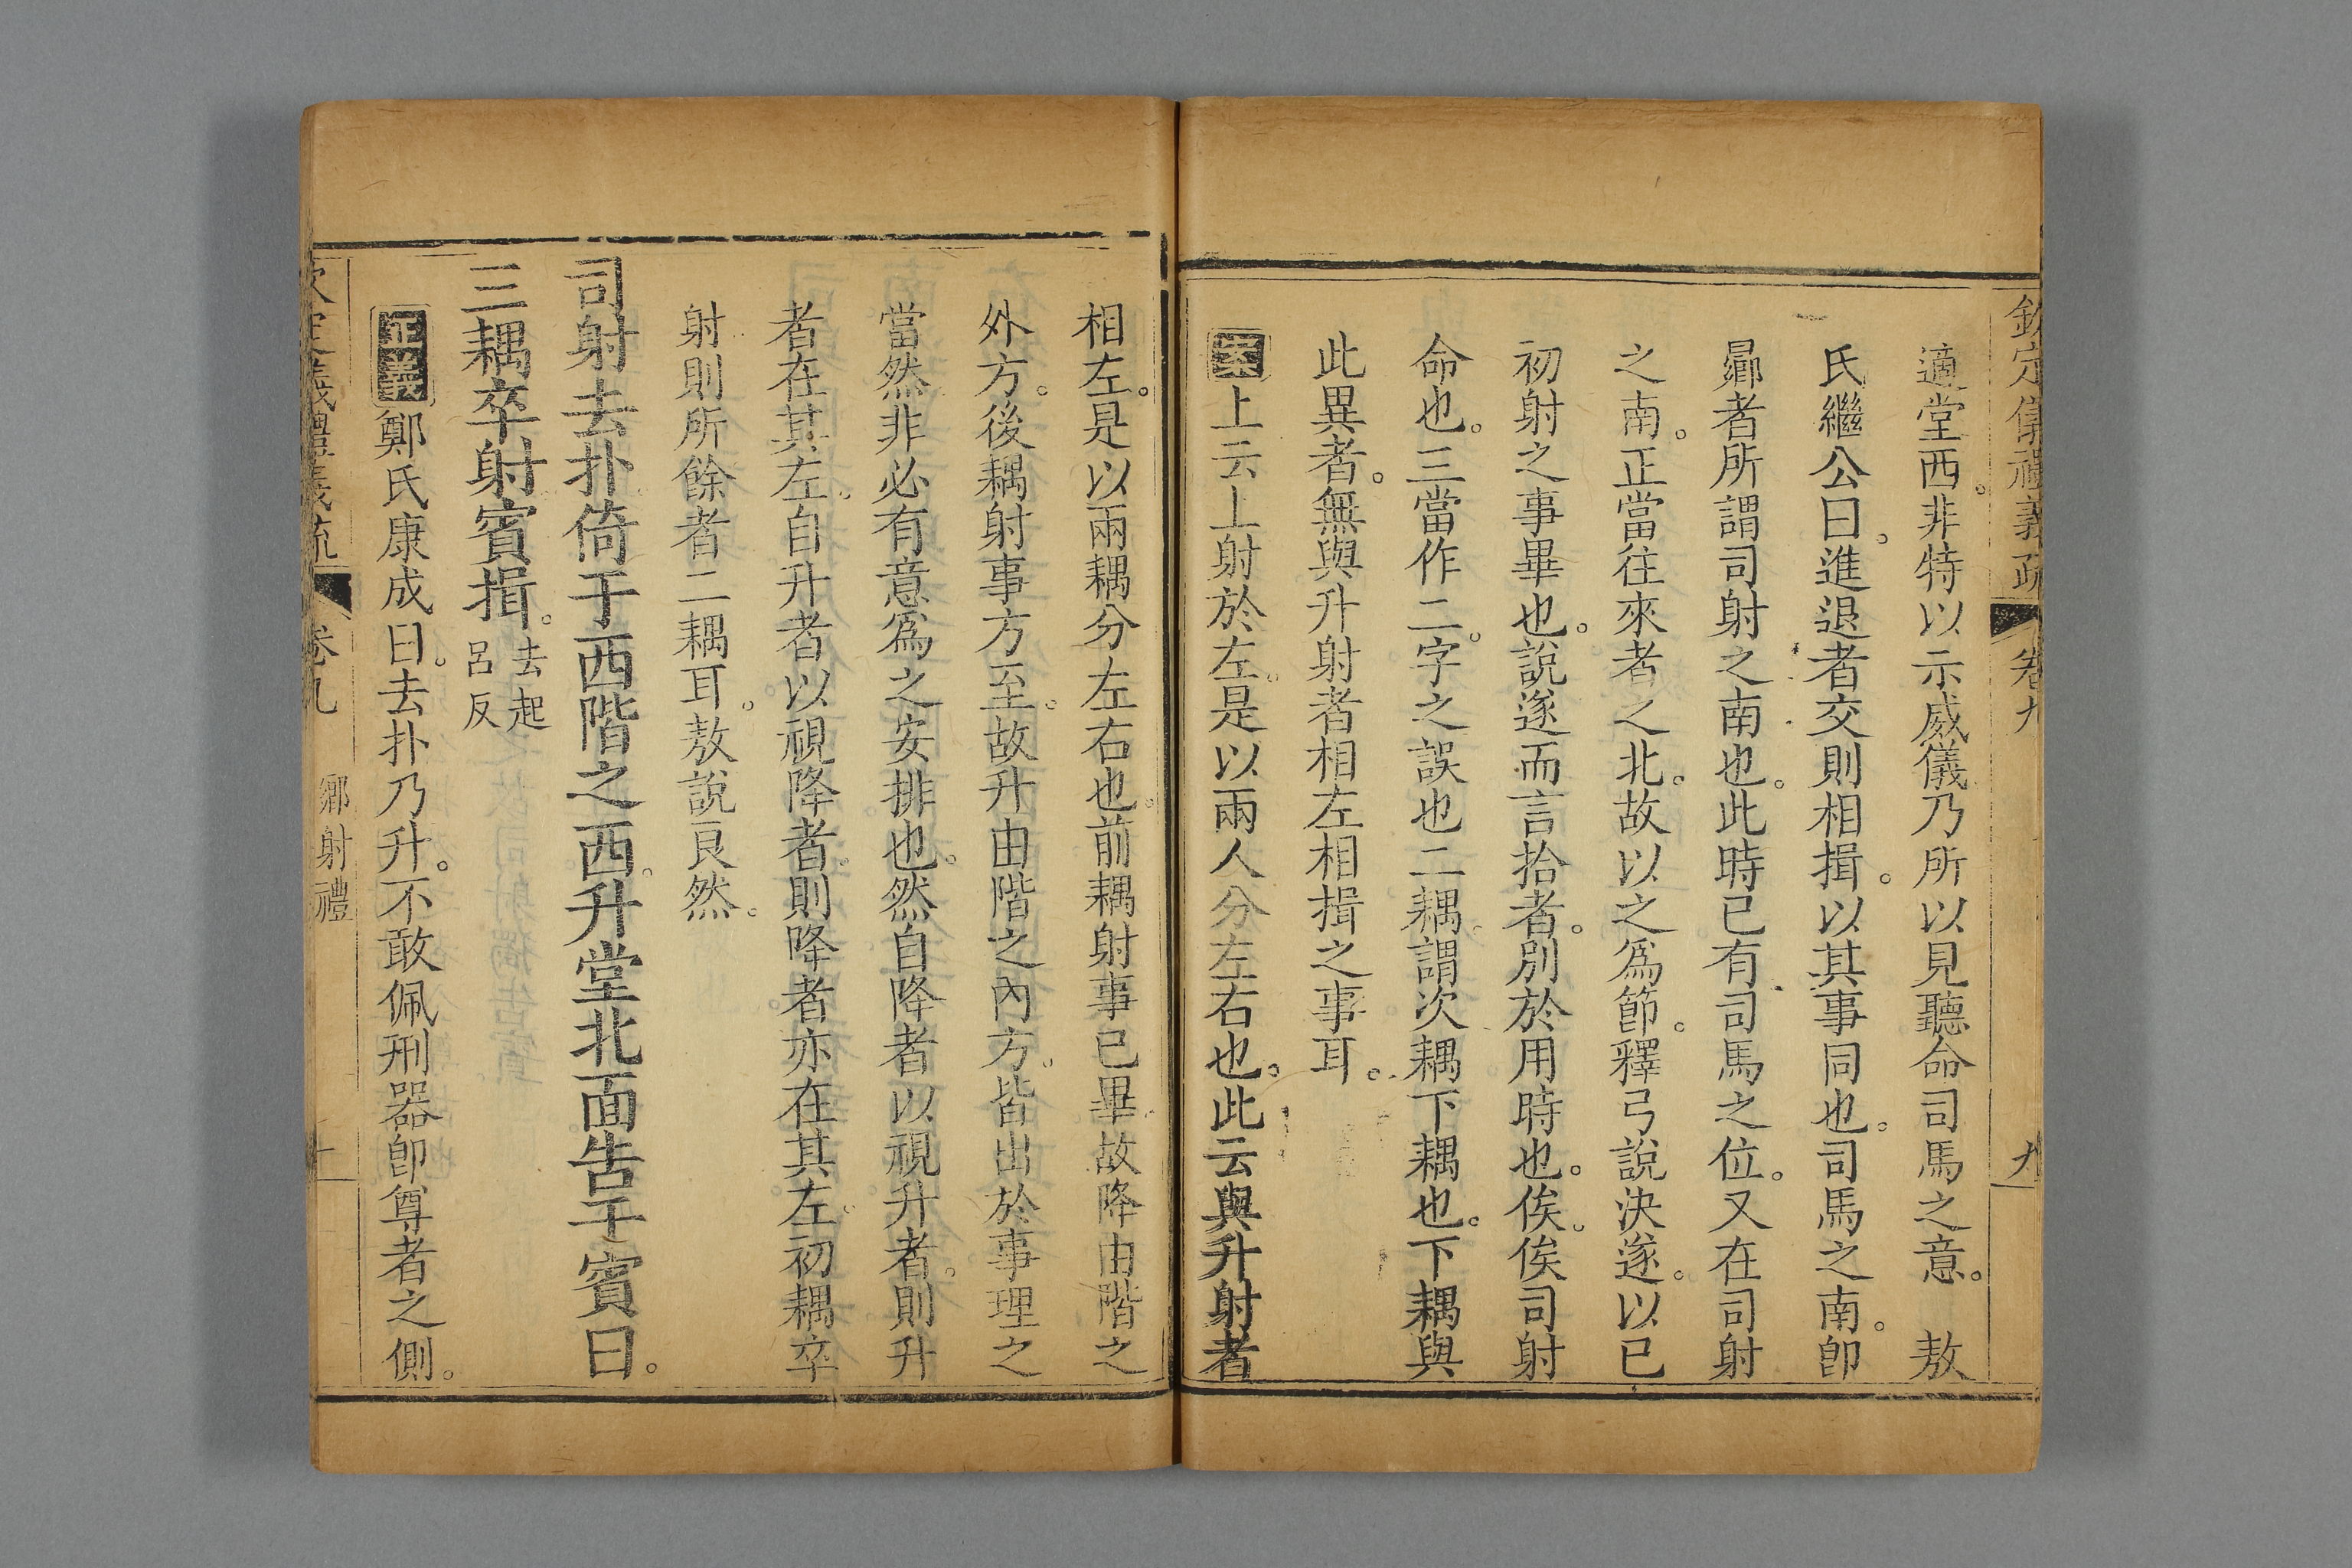 欽定儀禮義疏 卷九 九
適堂西。非特以示威儀乃所以見聽命司馬之意。 敖
氏繼公曰。進退者交則相揖。以其事同也。司馬之南。卽
曏者所謂司射之南也。此時已有司馬之位。又在司射
之南。正當往來者之北。故以之爲節。釋弓說決遂。以已
初射之事畢也。說遂而言拾者。別於用時也。俟。俟司射
命也。三當作二。字之誤也二耦。謂次耦下耦也。下耦與
此異者。無與升射者相左相揖之事耳。
案上云上射於左。是以兩人分左右也。此云與升射者
相左。是以兩耦分左右也。前耦射事已畢。故降由階之
外方。後耦射事方至。故升由階之內方。皆出於事理之
當然非必有意爲之安排也。然自降者以視升者。則升
者在其左。自升者以視降者。則降者亦在其左。初耦卒
射則所餘者二耦耳。敖說良然。
司射去扑倚于西階之西。升堂北面告于賓曰。
三耦卒射賓揖。去起
呂反
正義鄭氏康成曰。去扑乃升。不敢佩刑器卽尊者之側。
欽定儀禮義疏 卷九 鄉射禮